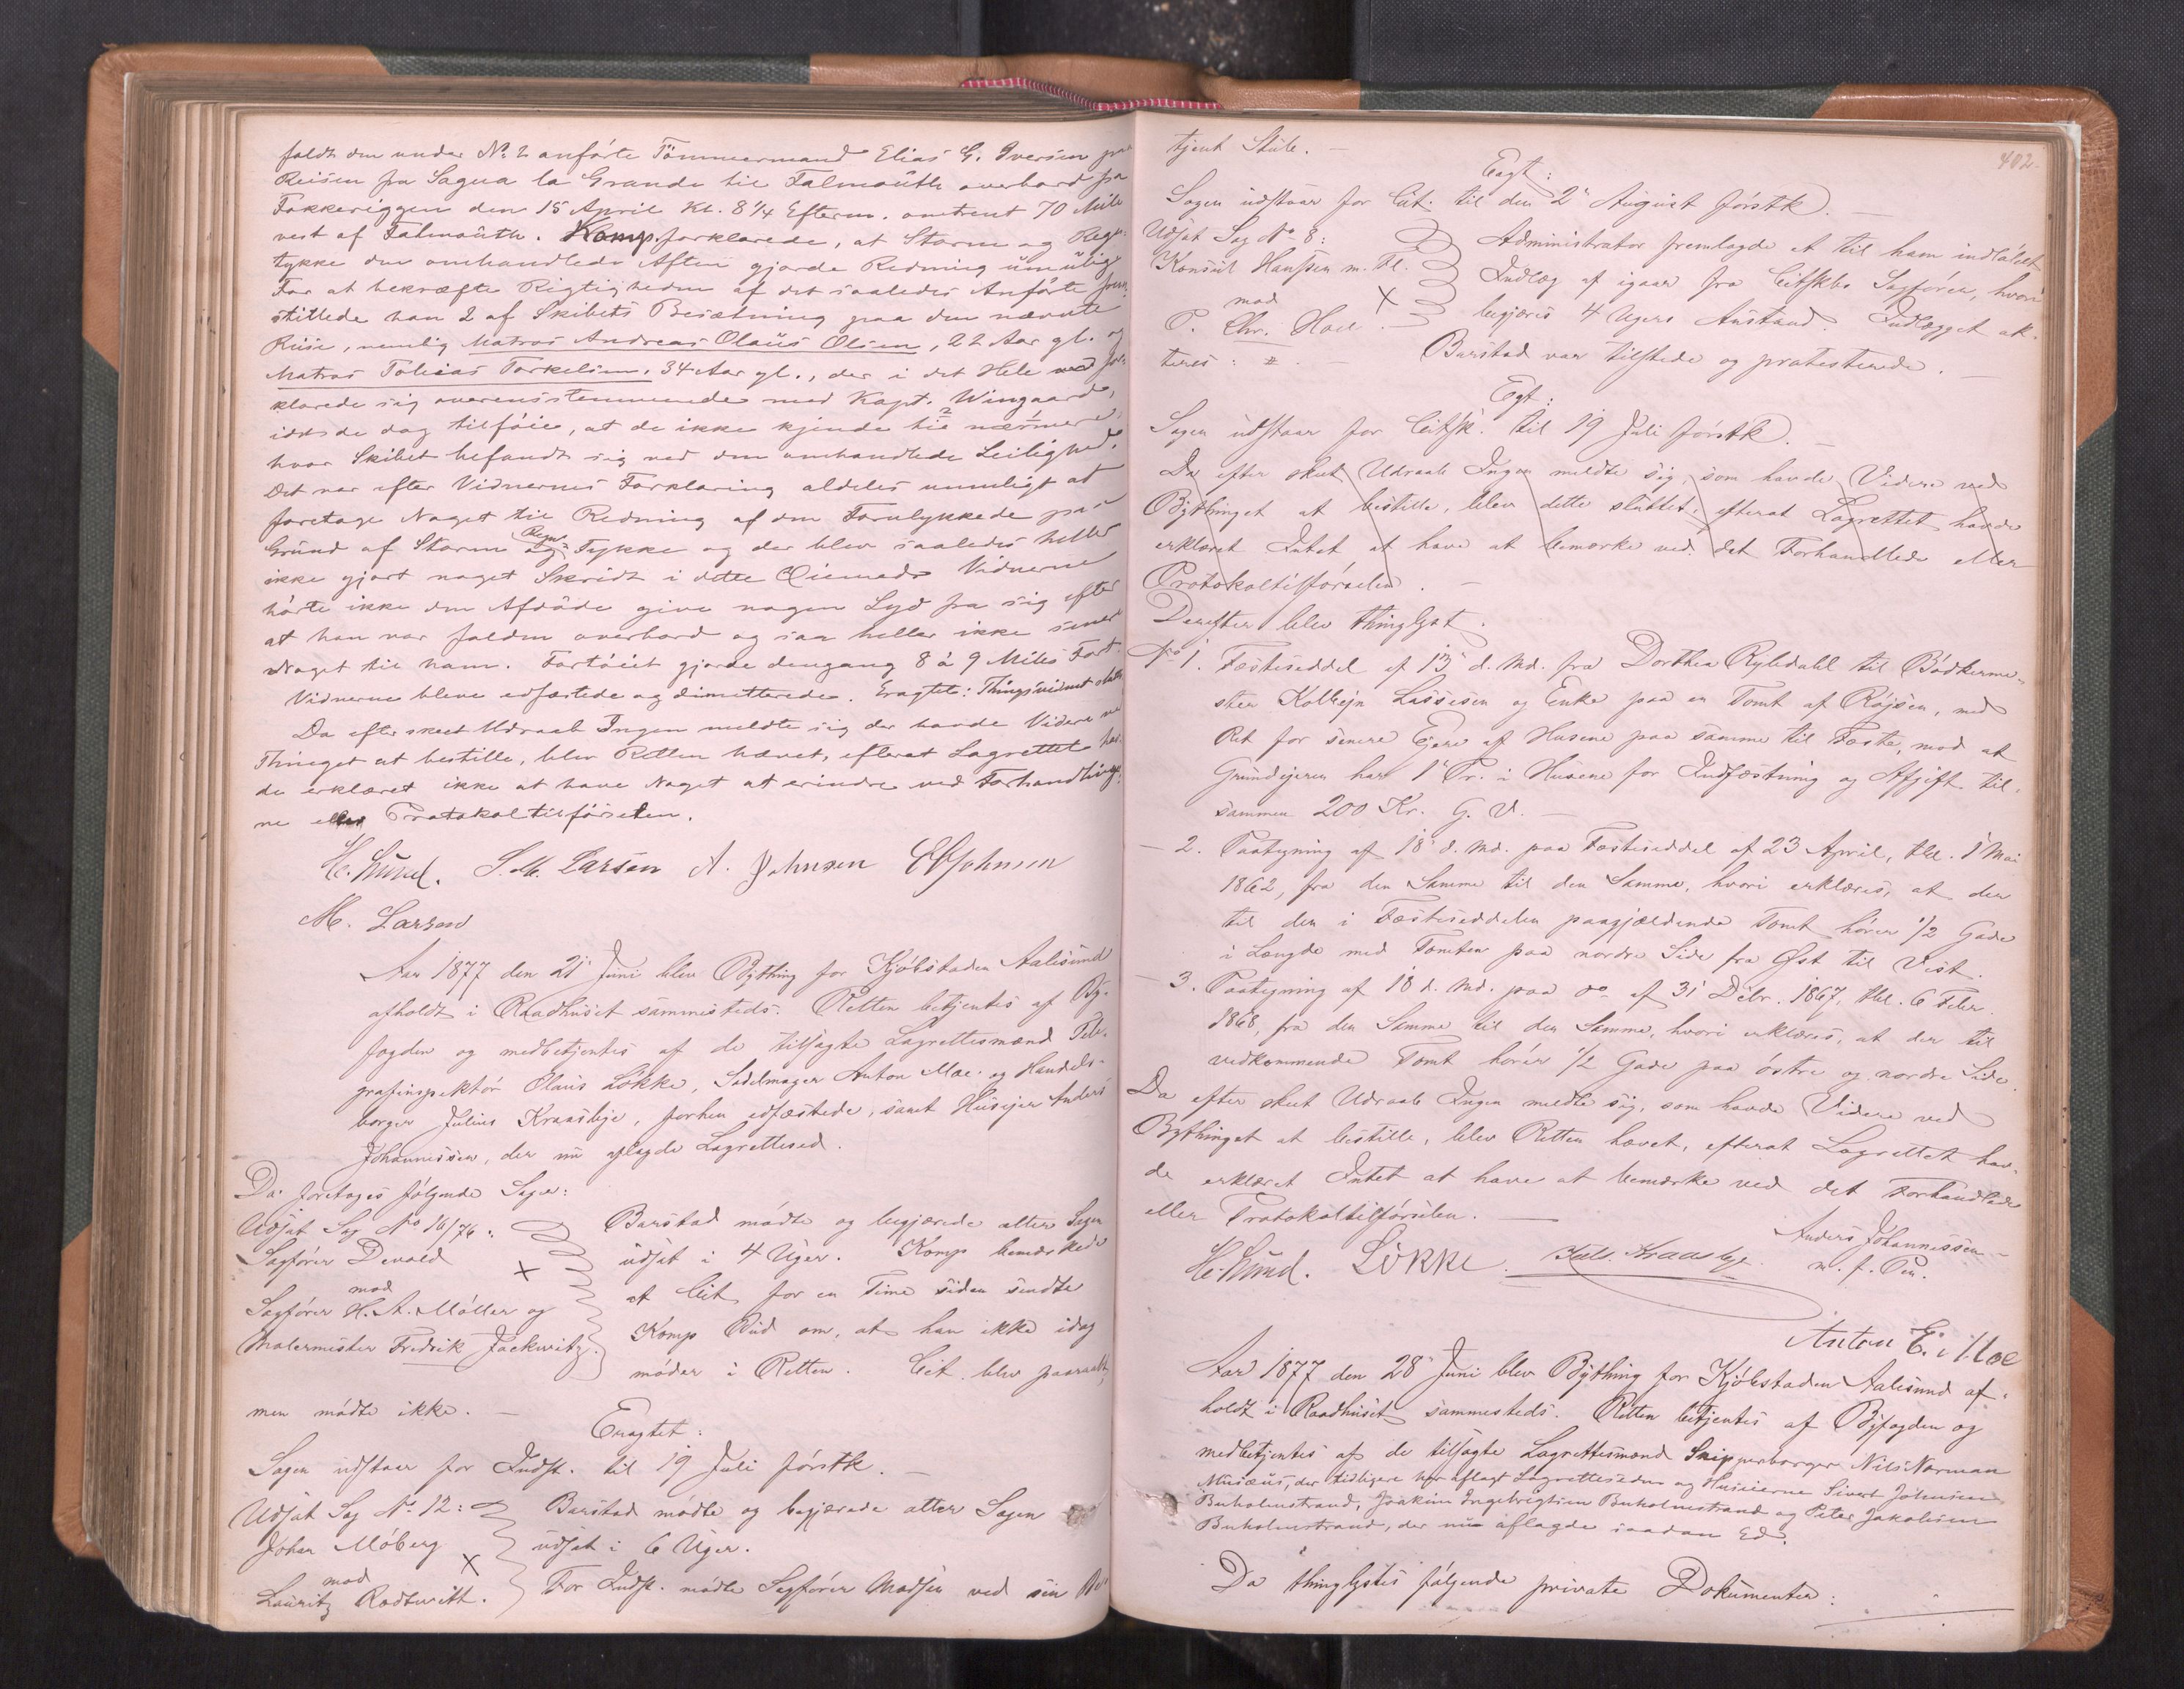 faldt den under No 2 anførte Tömmermand Elias G. Iversen paa
Reisen fra Sagua la Grande til Falmoüth overbord fra
Fokkeriggen den 15 April Kl. 8 1/4 Efterm. omtrent 70 Mile
vest af Falmoüth. Komp. forklarede, at Storm og Regn-
tykke den omhandlede Aften gjorde Redning ümülig.
For at bekræfte Rigtigheden af det saaledes Anførte frem-
stillede han 2 af Skibets Besætning paa den nævnte
Reise, nemlig Matros Andreas Olaüs Olsen, 22 Aar gl. og
Matros Tobias Torkelsen, 34 Aar gl., der i det Hele for-
klarede sig overensstemmende med Kapt. Wingaard,
idet de dog tilföie, at de ikke kjende til nærmere,
hvor Skibet befandt sig ved den omhandlede Leilighed.
Det var efter Vidnernes Forklaring aldeles umuligt at
foretage Noget til Redning af den Forulykkede paa
Gründ af Storm og Regn- Tykke og der blev saaledes heller
ikke gjort noget Skridt i dette Øiemed. Vidnerne
hörte ikke den Afdöde give nogen Lyd fra sig efter
at han var falden overbord og saa heller ikke senere
Noget til ham. Fartöiet gjorde dengang 8 à 9 Miles Fart.
Vidnerne bleve edfæstede og dimitterede. Eragtet: Thingsvidnet
Da efter skeet Udraab Ingen meldte sig der havde Videre ved
Thinget at bestille, blev Retten hævet, efterat Lagrettet hav-
de erklæret ikke at have Noget at erindre ved Forhandlinger-
ne eller Protokoltilförselen.
H. Lund. S. M. Larsen A. Johnsen E Johnsen
M. Larsen
Aar 1877 den 21 Juni blev Bything for Kjøbstaden Aalesund
afholdt i Raadhüset sammesteds. Retten betjentes af By-
fogden og medbetjentes af de tilsagte Lagrettesmænd Tele-
grafinspektör Olaüs Løkke, Sadelmager Anton Moe og Handels-
borger Julius Kraasbye, forhen edfæstede, samt Hüsejer Anders
Johannessen, der nü aflagde Lagrettesed.
Da foretoges følgende Sager:
Udsat Sag No 16/76: Barstad mødte og begjærede atter Sagen
Sagfører Devold udsat i 4 Uger. Komp bemærkede
mod × at Cit. for en Time siden sendte
Sagfører H. A. Møller og Komp Bud om, at han ikke idag
Malermester Fredrik Jackwitz. møder i Retten. Cit. blev paaraabt,
men mødte ikke. —
Eragtet:
Sagen udstaar for Indst. til 19 Juli førstk. —
Udsat Sag No 12: Barstad mødte og begjærede atter Sagen
Johan Møberg udsat i 6 Uger.
mod × For Indst. mødte Sagfører Madsen ved sin Be-
Lauritz Rodtwitt.
402.
tjent Stüle. —
Eragt:
Sagen üdstaar for Cit. til den 2 August førstk. —
Udsat Sag No 8: Administrator fremlagde et til ham indløbet
Konsül Hanssen m. Fl. Indlæg af igaar fra Citskbs Sagfører, hvori
mod × begjæres 4 Ugers Anstand. Indlægget ak-
P. Chr. Hoel.
teres: — Barstad var tilstede og protesterede. —
Egt:
Sagen üdstaar for Citsk. til 19 Juli førstk. —
Da efter skeet Udraab Ingen meldte sig, som havde Videre ved
Bythinget at bestille, blev dette slüttet, efterat Lagrettet havde
erklæret Intet at have at bemærke ved det Forhandlede eller
Protokoltilførselen. —
Derefter blev thinglyst.
No 1. Fæsteseddel af 13 d. Md. fra Dorthea Ryledahl til Bødkerme-
ster Kolbejn Lassesen og Enke paa en Tomt af Røjsen, med
Ret for senere Ejere af Husene paa samme til Fæste, mod at
Grundejeren har 1 Pr. i Husene for Indfæstning og Afgift til-
sammen 200 Kr. G. V. —
— 2. Paategning af 18 d. Md. paa Fæsteseddel af 23 April, thl. 1 Mai
1862, fra den Samme til den Samme, hvori erklæres, at der
til den i Fæsteseddelen paagjældende Tomt hører 1/2 Gade
i Længde med Tomten paa nordre Side fra Øst til Vest.
— 3. Paategning af 18 d. Md. paa do af 31 Debr. 1867, thl. 6 Febr.
1868, fra den Samme til den Samme, hvori erklæres, at der til
vedkommende Tomt hører 1/2 Gade paa østre og nordre Side.
Da efter skeet Udraab Ingen meldte sig, som havde Videre ved
Bythinget at bestille, blev Retten hævet, efterat Lagrettet hav-
de erklæret Intet at have at bemærke ved det Forhandlede
eller Protokoltilførselen. —
H. Lund. Løkke. Juls. Kraasbye Anders Johannessen
m. f. Pen.
Anton E. Moe
Aar 1877 den 28 Juni blev Bything for Kjøbstaden Aalesund af-
holdt i Raadhüset sammesteds. Retten betjentes af Byfogden og
medbetjentes af de tilsagte Lagrettesmænd Skipperborger Nils Norman
Musæüs, der tidligere har aflagt Lagretteseden og Huseierne Sivert Johnsen
Buholmstrand, Joakim Ingebrigtsen Buholmstrand og Peter Jakobsen
Buholmstrand, der nu aflagde saadan Ed.
Da thinglystes følgende private Dokumenter: